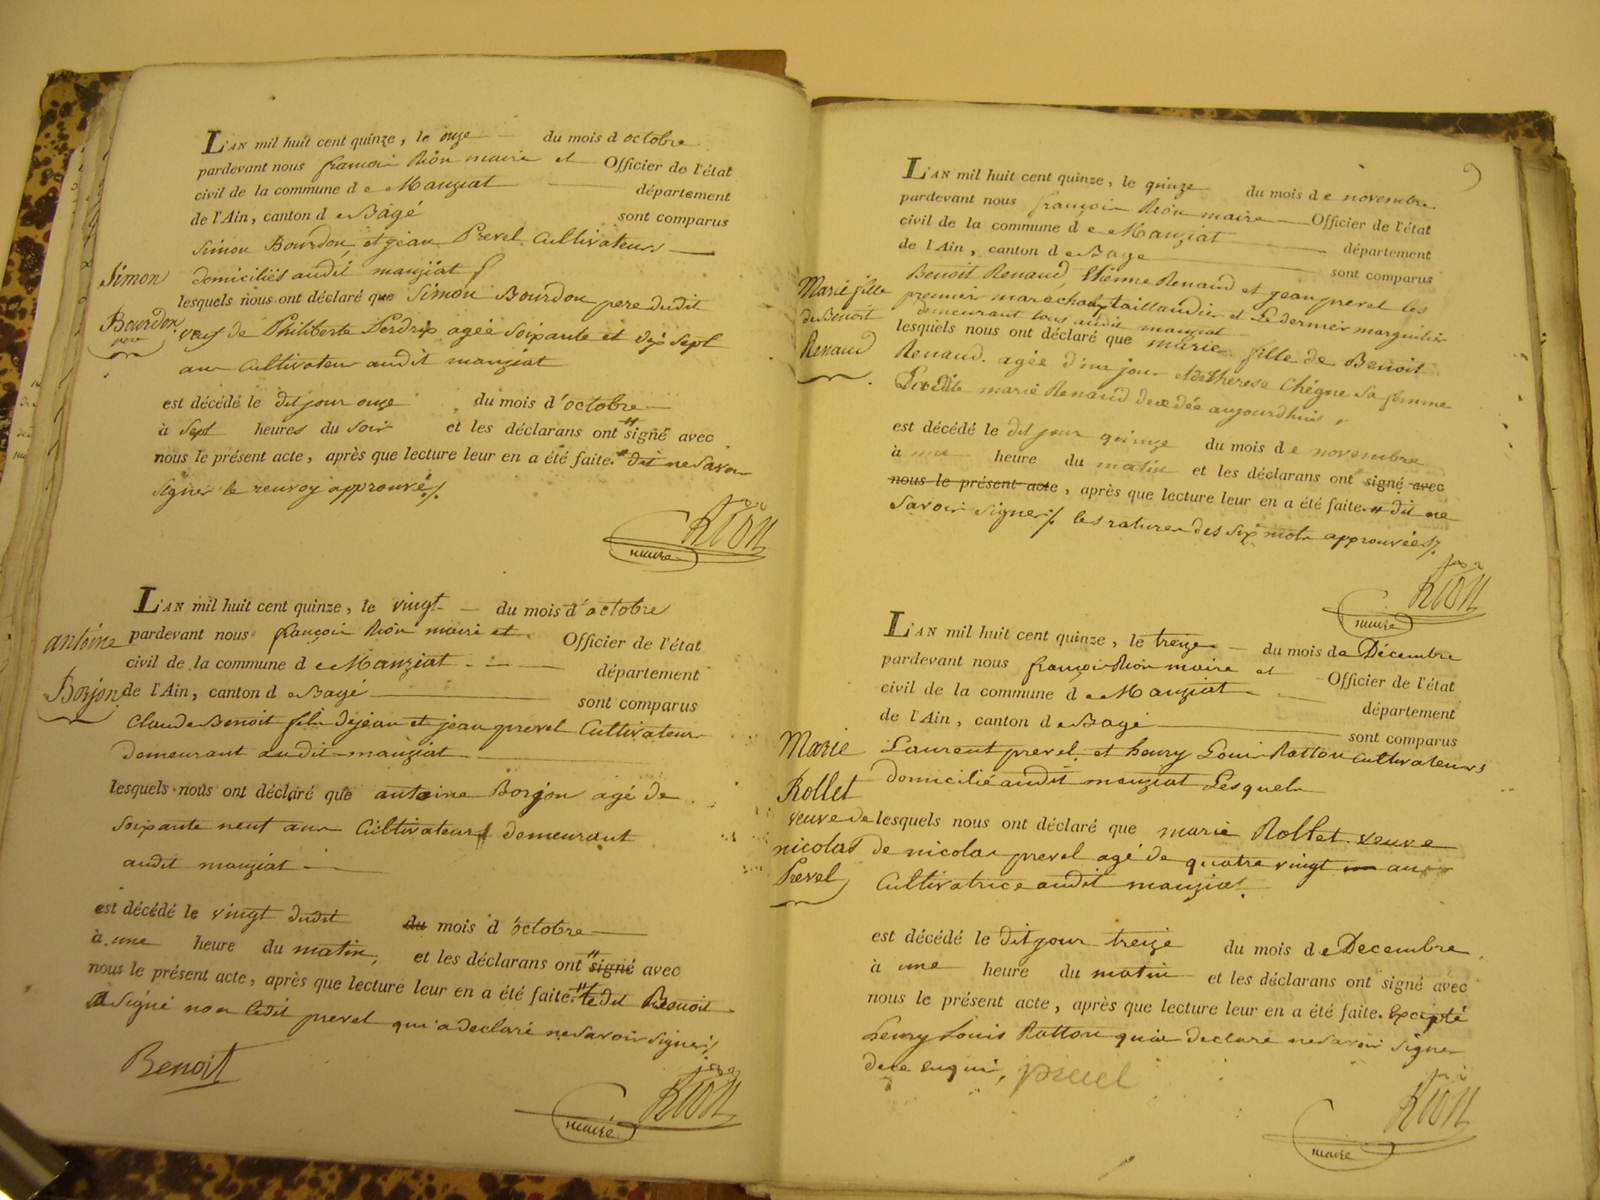 L'AN mil huit cent quinze, le onze du mois d octobre
pardevant nous françois Rion maire et Officier de l'état
civil de la commune d e Manziat département
de l'Ain, canton d e Bagé sont comparus
Simon Bourdon, et jean Prevel Cultivateurs
domiciliés audit manziat
lesquels nous ont déclaré que Simon Bourdon pere dudit
veuf de Philiberte Perdrix agée Soixante et dix Sept
ans Cultivateur audit manziat
est décédé le dit jour onze du mois d'octobre
à Sept heures du Soir et les déclarans ont signé avec
nous le présent acte, après que lecture leur en a été faite. dit ne Savoir
Signer le renvoy approuvé
Rion
maire
Simon
Bourdon
pere
L'AN mil huit cent quinze, le vingt du mois d'octobre
pardevant nous françois Rion maire et Officier de l'état
civil de la commune d e Manziat département
de l'Ain, canton d e Bagé sont comparus
Claude Benoit fils dejean et jean prevel Cultivateur
demeurant audit manziat
lesquels nous ont déclaré que antoine Borjon agé de
Soixante neuf ans Cultivateur demeurant
audit manziat
est décédé le vingt dudit du mois d'octobre
à une heure du matin, et les déclarans ont signé avec
nous le présent acte, après que lecture leur en a été faite. ledit Benoit
a Signé non ledit prevel qui a declaré ne Savoir Signer
Benoit
Rion
maire
antoine
Borjon
9
L'AN mil huit cent quinze, le quinze du mois d e novembre
pardevant nous françois Rion maire Officier de l'état
civil de la commune d e Manziat département
de l'Ain, canton d e Bage sont comparus
Benoit Renaud, Etienne Renaud et jean prevel les
premier marechaux taillandier et Le dernier marguilier
demeurant tous audit manziat
lesquels nous ont déclaré que marie fille de Benoit
Renaud. agée d'un jour et de therese Chégne Sa femme
Ladite marie Renaud decedée aujourdhui
est décédé le dit jour quinze du mois d e novembre
à une heure du matin et les déclarans ont signé avec
nous le présent acte, après que lecture leur en a été faite. dit ne
Savoir Signer les ratures des Six mots approuvées
Rion
maire
Marie fille
de Benoit
Renaud
L'AN mil huit cent quinze, le treize du mois de Décembre
pardevant nous françois Rion maire et Officier de l'état
civil de la commune d e Manziat département
de l'Ain, canton d e Bagé sont comparus
Laurent prevel et henry Louis Ratton cultivateurs
domicilié audit manziat Lesquels
lesquels nous ont déclaré que marie Rollet veuve
de nicolas prevel agé de quatre vingt ans
Cultivatrice audit manziat
est décédé le dit jour treize du mois d e Decembre
à une heure du matin et les déclarans ont signé avec
nous le présent acte, après que lecture leur en a été faite. Excepté
henry Louis Ratton qui a declaré ne Savoir Signer
de ce enquis, prevel
Rion
maire
Marie
Rollet
veuve de
nicolas
Prevel